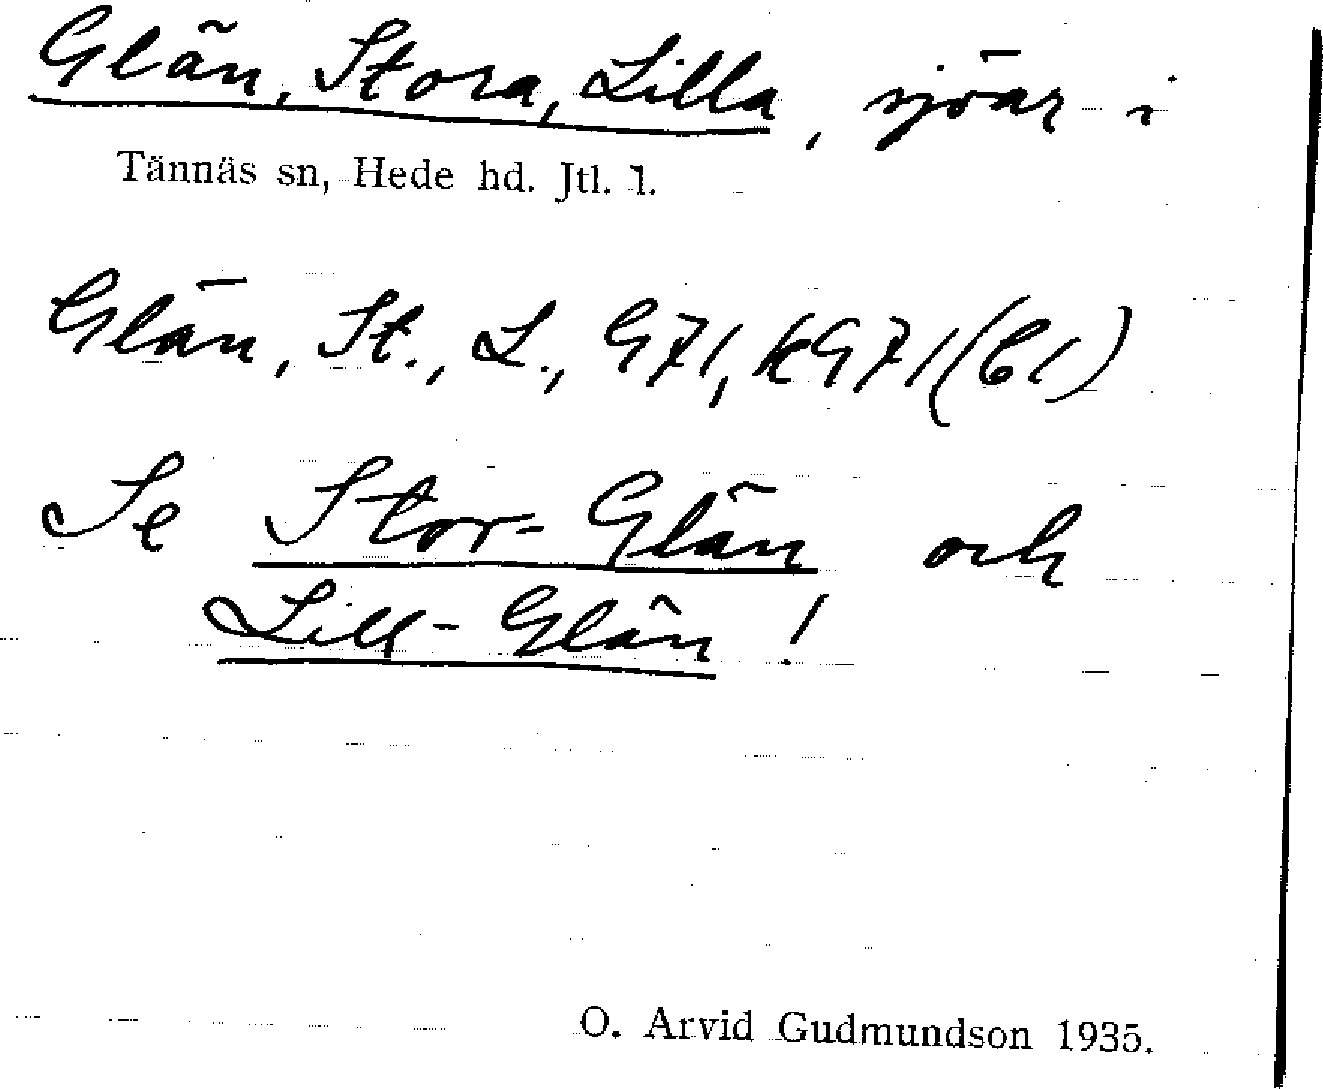 Glän, Stora, Lilla, sjöar i
Tännäs sn, Hede hd. Jtl. l.
Glän, St., L., G71, kG71(61)
Se Stor-Glän och
Lill-Glän!
O. Arvid Gudmundson 1935.